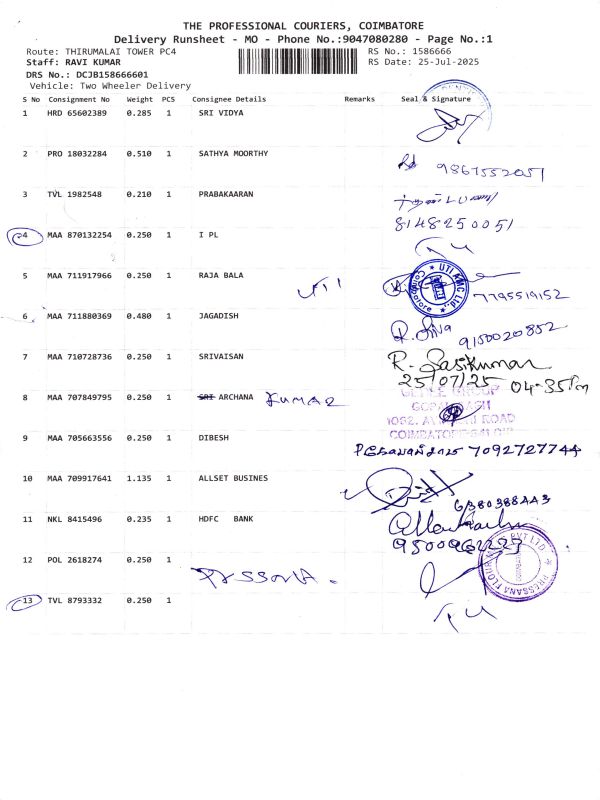 THE PROFESSIONAL COURIERS, COIMBATORE
Delivery Runsheet - MO - Phone No.:9047080280 - Page No.:1
Route: THIRUMALAI TOWER PC4 RS No.: 1586666
Staff: RAVI KUMAR RS Date: 25-Jul-2025
DRS No.: DCJB158666601
Vehicle: Two Wheeler Delivery
S No Consignment No Weight PCS Consignee Details Remarks Seal & Signature
1 HRD 65602389 0.285 1 SRI VIDYA
2 PRO 18032284 0.510 1 SATHYA MOORTHY
9867552051
3 TVL 1982548 0.210 1 PRABAKAARAN
8148250051
4 MAA 870132254 0.250 1 I PL
5 MAA 711917966 0.250 1 RAJA BALA UTI
UTI KMC Ltd. Coimbatore
7795519152
6 MAA 711880369 0.480 1 JAGADISH
R. Siva 9150020852
7 MAA 710728736 0.250 1 SRIVAISAN R. Sasikumar
25/07/25 04-35Pm
8 MAA 707849795 0.250 1 SRI ARCHANA KUMAR
ROAD
9 MAA 705663556 0.250 1 DIBESH
7092727744
10 MAA 709917641 1.135 1 ALLSET BUSINES
6380388443
11 NKL 8415496 0.235 1 HDFC BANK
12 POL 2618274 0.250 1
PRESSANA FLOUR PVT LTD
13 TVL 8793332 0.250 1